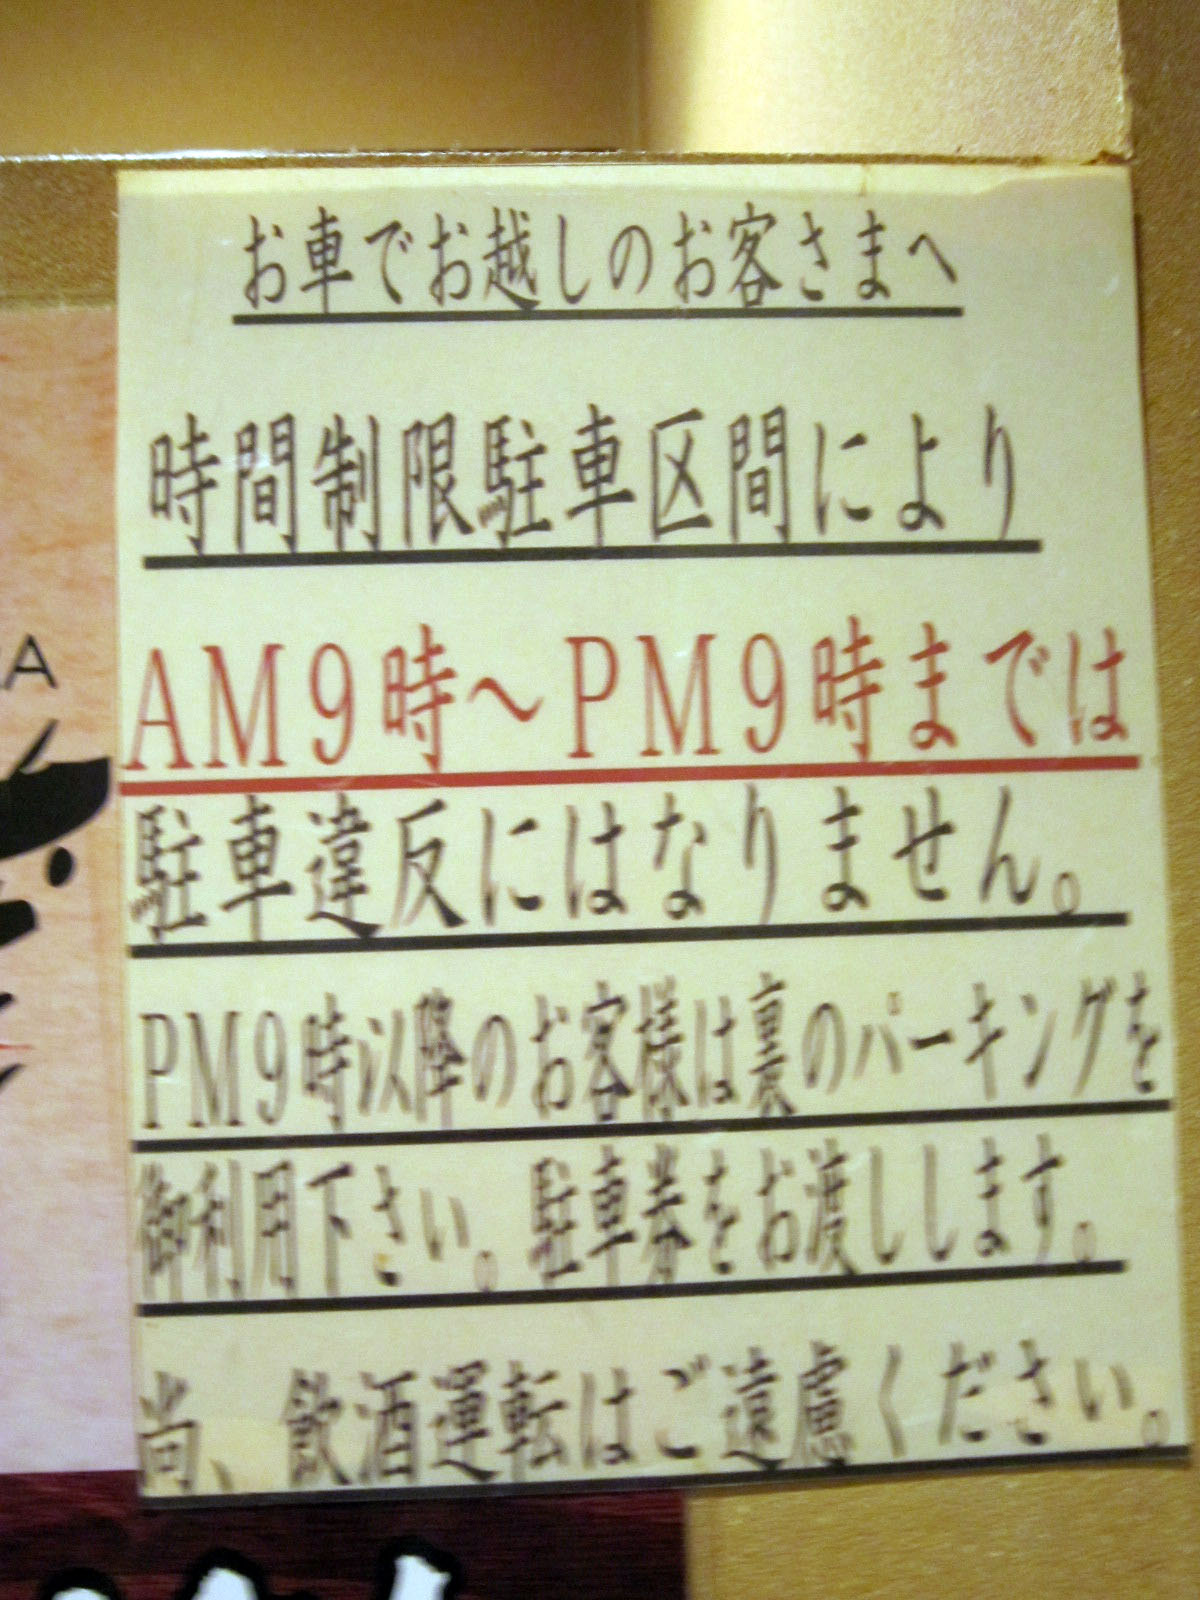 お車でお越しのお客さまへ
時間制限駐車区間により
AM9時～PM9時までは
駐車違反にはなりません。
PM9時以降のお客様は裏のパーキングを
御利用下さい。駐車券をお渡しします。
尚、飲酒運転はご遠慮ください。